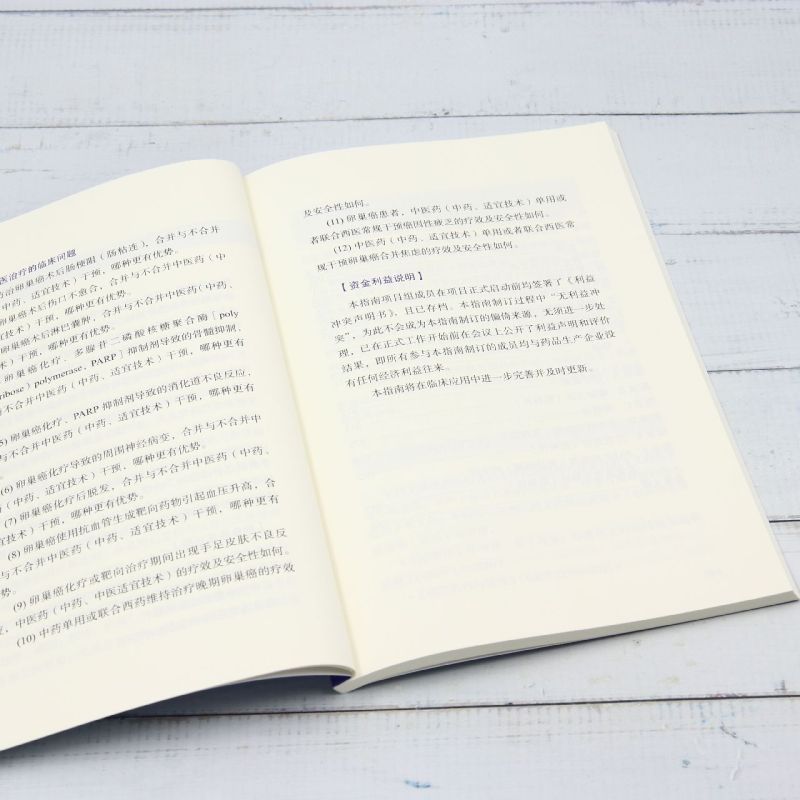 医治疗的临床问题
防治卵巢癌术后肠梗阻（肠粘连），合并与不合并
中药、适宜技术）干预，哪种更有优势。
卵巢癌术后伤口不愈合，合并与不合并中医药（中
宜技术）干预，哪种更有优势。
卵巢癌术后淋巴囊肿，合并与不合并中医药（中药、
术）干预，哪种更有优势。
卵巢癌化疗、多腺苷二磷酸核糖聚合酶［poly
ribose）polymerase, PARP］抑制剂导致的骨髓抑制、
与不合并中医药（中药、适宜技术）干预，哪种更有
5) 卵巢癌化疗、PARP 抑制剂导致的消化道不良反应，
与不合并中医药（中药、适宜技术）干预，哪种更有优势。
(6) 卵巢癌化疗导致的周围神经病变，合并与不合并中
药（中药、适宜技术）干预，哪种更有优势。
(7) 卵巢癌化疗后脱发，合并与不合并中医药（中药、
宜技术）干预，哪种更有优势。
(8) 卵巢癌使用抗血管生成靶向药物引起血压升高，合
与不合并中医药（中药、适宜技术）干预，哪种更有
势。
(9) 卵巢癌化疗或靶向治疗期间出现手足皮肤不良反
应，中医药（中药、中医适宜技术）的疗效及安全性如何。
(10) 中药单用或联合西药维持治疗晚期卵巢癌的疗效
及安全性如何。
(11) 卵巢癌患者，中医药（中药、适宜技术）单用或
者联合西医常规干预癌因性疲乏的疗效及安全性如何。
(12) 中医药（中药、适宜技术）单用或者联合西医常
规干预卵巢癌合并焦虑的疗效及安全性如何。
【资金利益说明】
本指南项目组成员在项目正式启动前均签署了《利益
冲突声明书》，且已存档。本指南制订过程中“无利益冲
突”，为此不会成为本指南制订的偏倚来源，无须进一步处
理，已在正式工作开始前在会议上公开了利益声明和评价
结果，即所有参与本指南制订的成员均与药品生产企业没
有任何经济利益往来。
本指南将在临床应用中进一步完善并及时更新。